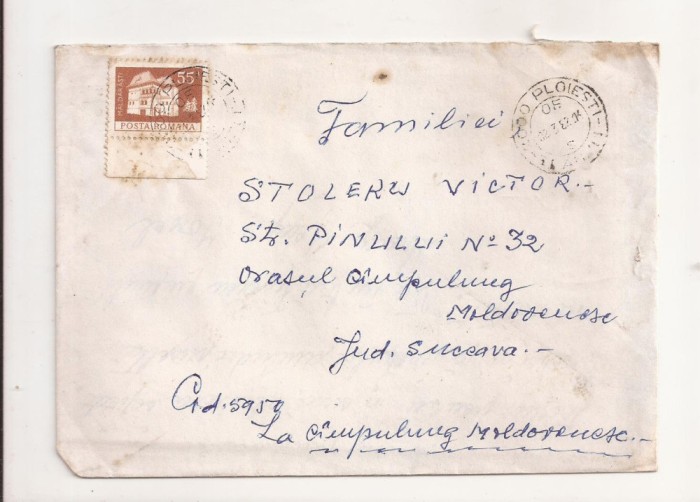 55
MĂLDĂRĂȘTI
POSTA ROMANA
PLOIESTI-1
OF
02.7.82.14
Familiei
STOLERU VICTOR.-
Str. PINULUI No 32
Orasul Cimpulung
Moldovenesc
Jud. Suceava.-
Cod.5950
La Cimpulung Moldovenesc.-